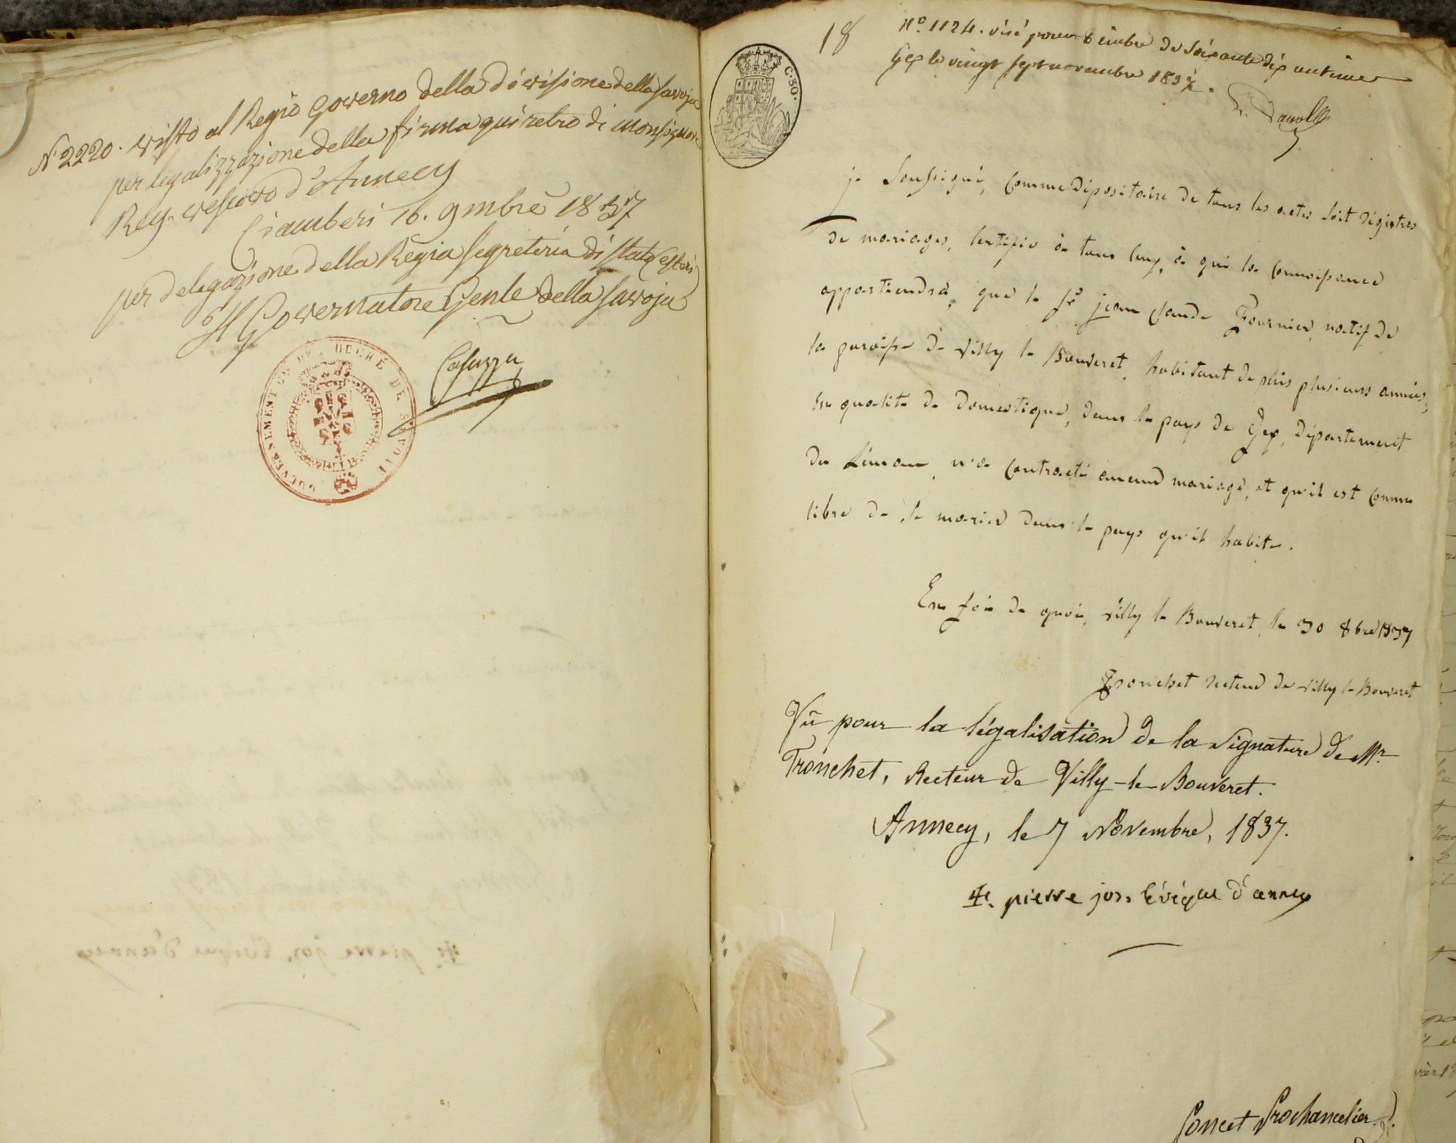 N 2220. visto al Regio Governo della divisione della Savoja
per legalizzazione della firma qui retro di Monsignore
Rev. vescovo d'Annecy
Ciamberì 16. 9mbre 1837
per delegazione della Regia Segreteria di Stato (esteri)
Il Governatore Gen.le della Savoja
GOUVERNEMENT DU DUCHÉ DE SAVOIE
18
C. 30.
N.o 1124. visé pour timbre de soixante dix centimes
Gex le vingt sept novembre 1837.
je Soussigné, comme dépositaire de tous les actes soit régistres
de mariages, certifie à tous ceux, à qui la connoissance
appartiendra, que le Sr. jean claude Fournier, natif de
la paroisse de Villy le Bouveret, habitant depuis plusieurs années,
en qualité de domestique, dans le pays de Gex, département
du Léman, n'a contracté aucun mariage, et qu'il est comme
libre de se marier dans le pays qu'il habite.
En foi de quoi, Villy le Bouveret, le 30 8bre 1837
Tronchet recteur de Villy le Bouveret
Vû pour la légalisation de la signature de Mr.
Tronchet, Recteur de Villy-le-Bouveret.
Annecy, le 7 Novembre, 1837.
pierre jos. évêque d'annecy
Poncet Prochancelier.